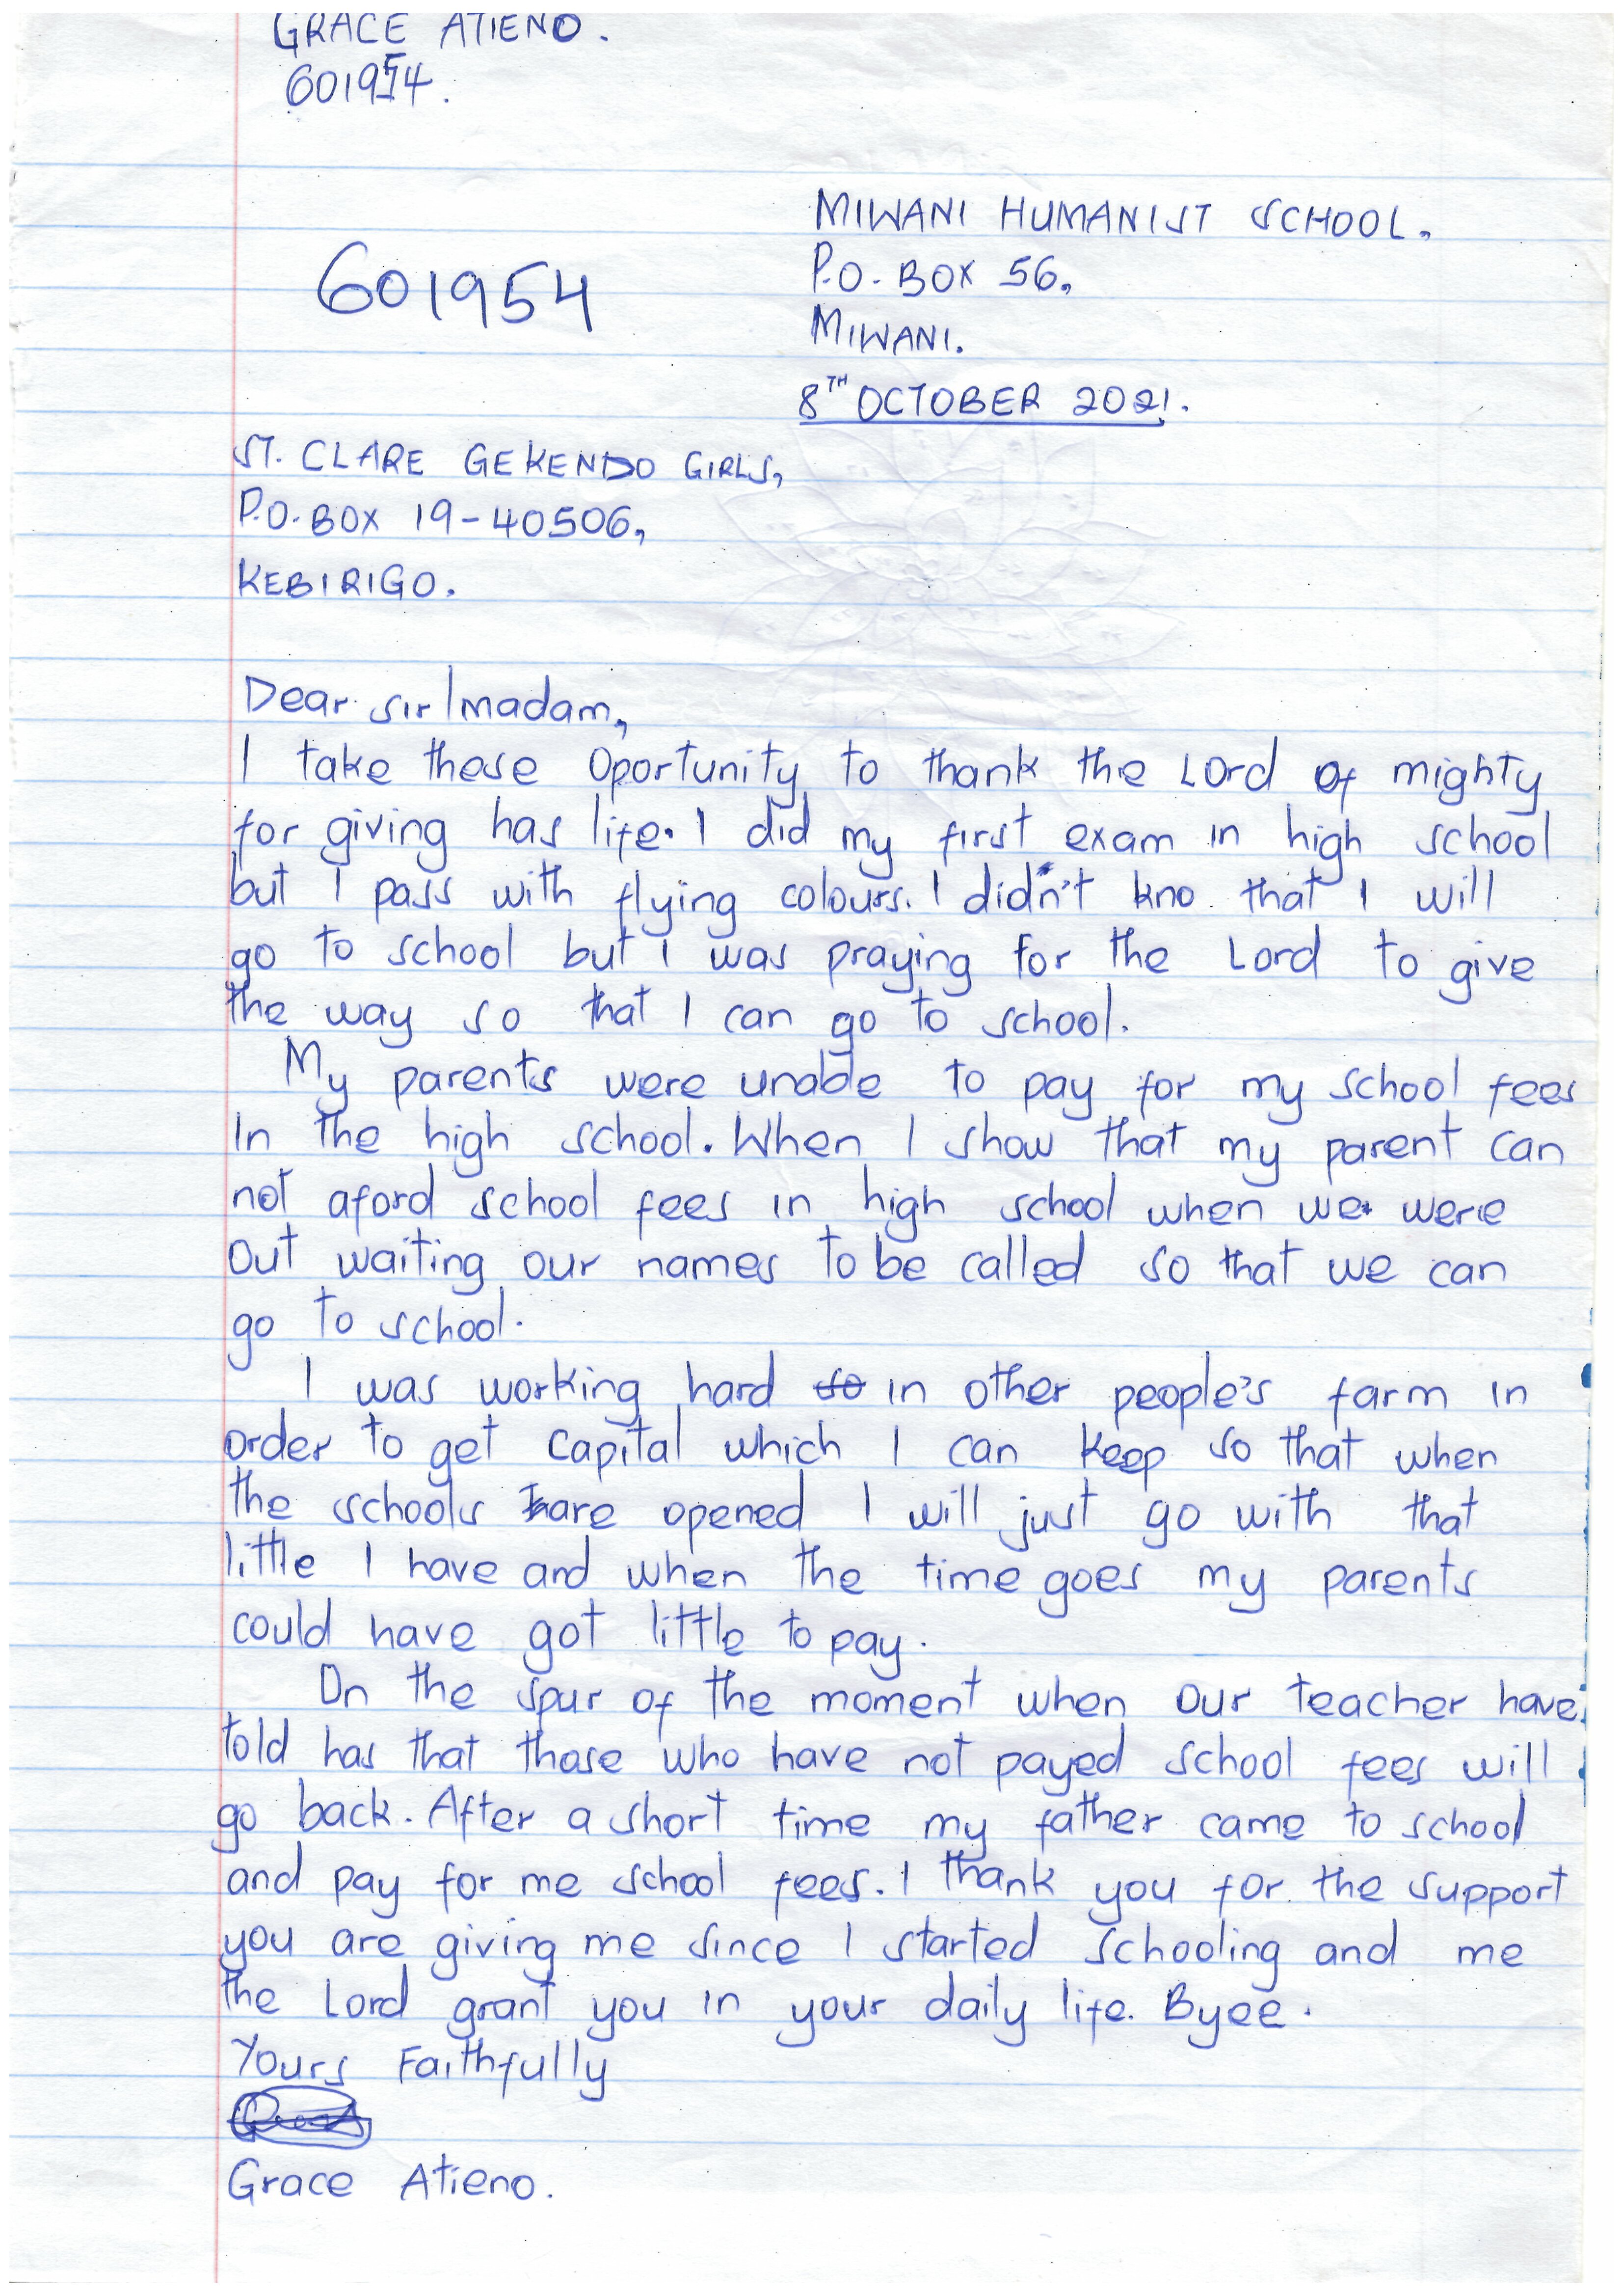 GRACE ATIENO.
601954.
MIWANI HUMANIST SCHOOL.
601954
P.O. BOX 56,
MIWANI.
8TH OCTOBER 2021.
ST. CLARE GEKENDO GIRLS,
P.O. BOX 19-40506,
KEBIRIGO.
Dear sir/madam,
I take these Oportunity to thank the Lord of mighty
for giving has life. I did my first exam in high school
but I pass with flying colours. I didn't kno that I will
go to school but I was praying for the Lord to give
the way so that I can go to school.
My parents were unable to pay for my school fees
In the high school. When I show that my parent can
not aford school fees in high school when we were
Out waiting our names to be called so that we can
go to school.
I was working hard so in other people's farm in
order to get capital which I can keep so that when
the schools are opened I will just go with that
little I have and when the time goes my parents
could have got little to pay.
On the spur of the moment when our teacher have
told has that those who have not payed school fees will
go back. After a short time my father came to school
and pay for me school fees. I thank you for the support
you are giving me since I started schooling and me
the Lord grant you in your daily life. Byee.
Yours Faithfully
Grace Atieno.